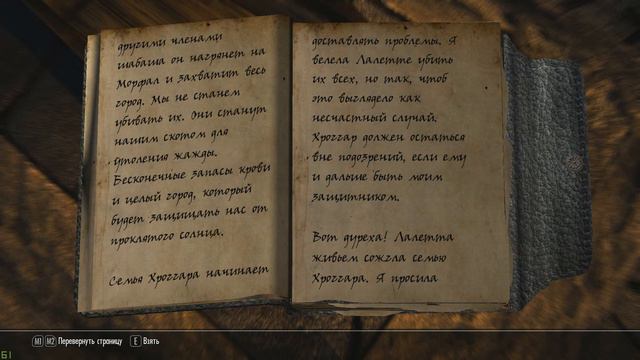 другими членами
шабаша он нагрянет на
Морфал и захватит весь
город. Мы не станем
убивать их. Они станут
нашим скотом для
утоления жажды.
Бесконечные запасы крови
и целый город, который
будет защищать нас от
проклятого солнца.
Семья Хроггара начинает
доставлять проблемы. Я
велела Лалетте убить
их всех, но так, чтоб
это выглядело как
несчастный случай.
Хроггар должен остаться
вне подозрений, если ему
и дальше быть моим
защитником.
Вот дуреха! Лалетта
живьем сожгла семью
Хроггара. Я просила
M1 M2 Перевернуть страницу E Взять
61